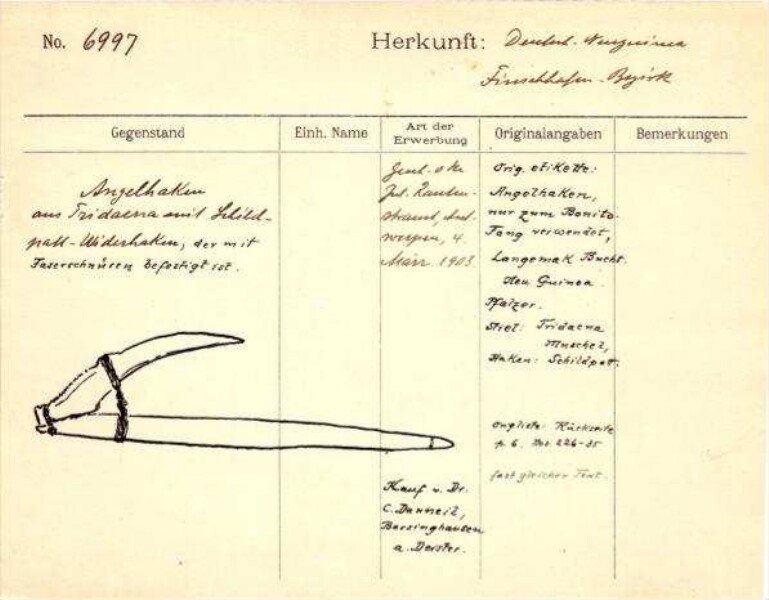 No. 6997
Herkunft: Deutsch. Neuguinea
Finschhafen-Bezirk
Gegenstand
Einh. Name
Art der Erwerbung
Originalangaben
Bemerkungen
Angelhaken
aus Tridacna mit Schild-
patt-Widerhaken, der mit
Faserschnüren befestigt ist.
Jul. Rauten-
strauch, Ant-
werpen, 4.
März 1903.
Kauf v. Dr.
C. Danneil,
Barsinghausen
a. Deister.
Orig. etikette:
Angelhaken,
nur zum Bonito-
Fang verwendet,
Langemak Bucht.
Neu Guinea.
Pfalzer.
Stiel: Tridacna
Muschel,
Haken: Schildpatt.
Rückseite
p. 6. No. 226-35
fast gleicher Text.